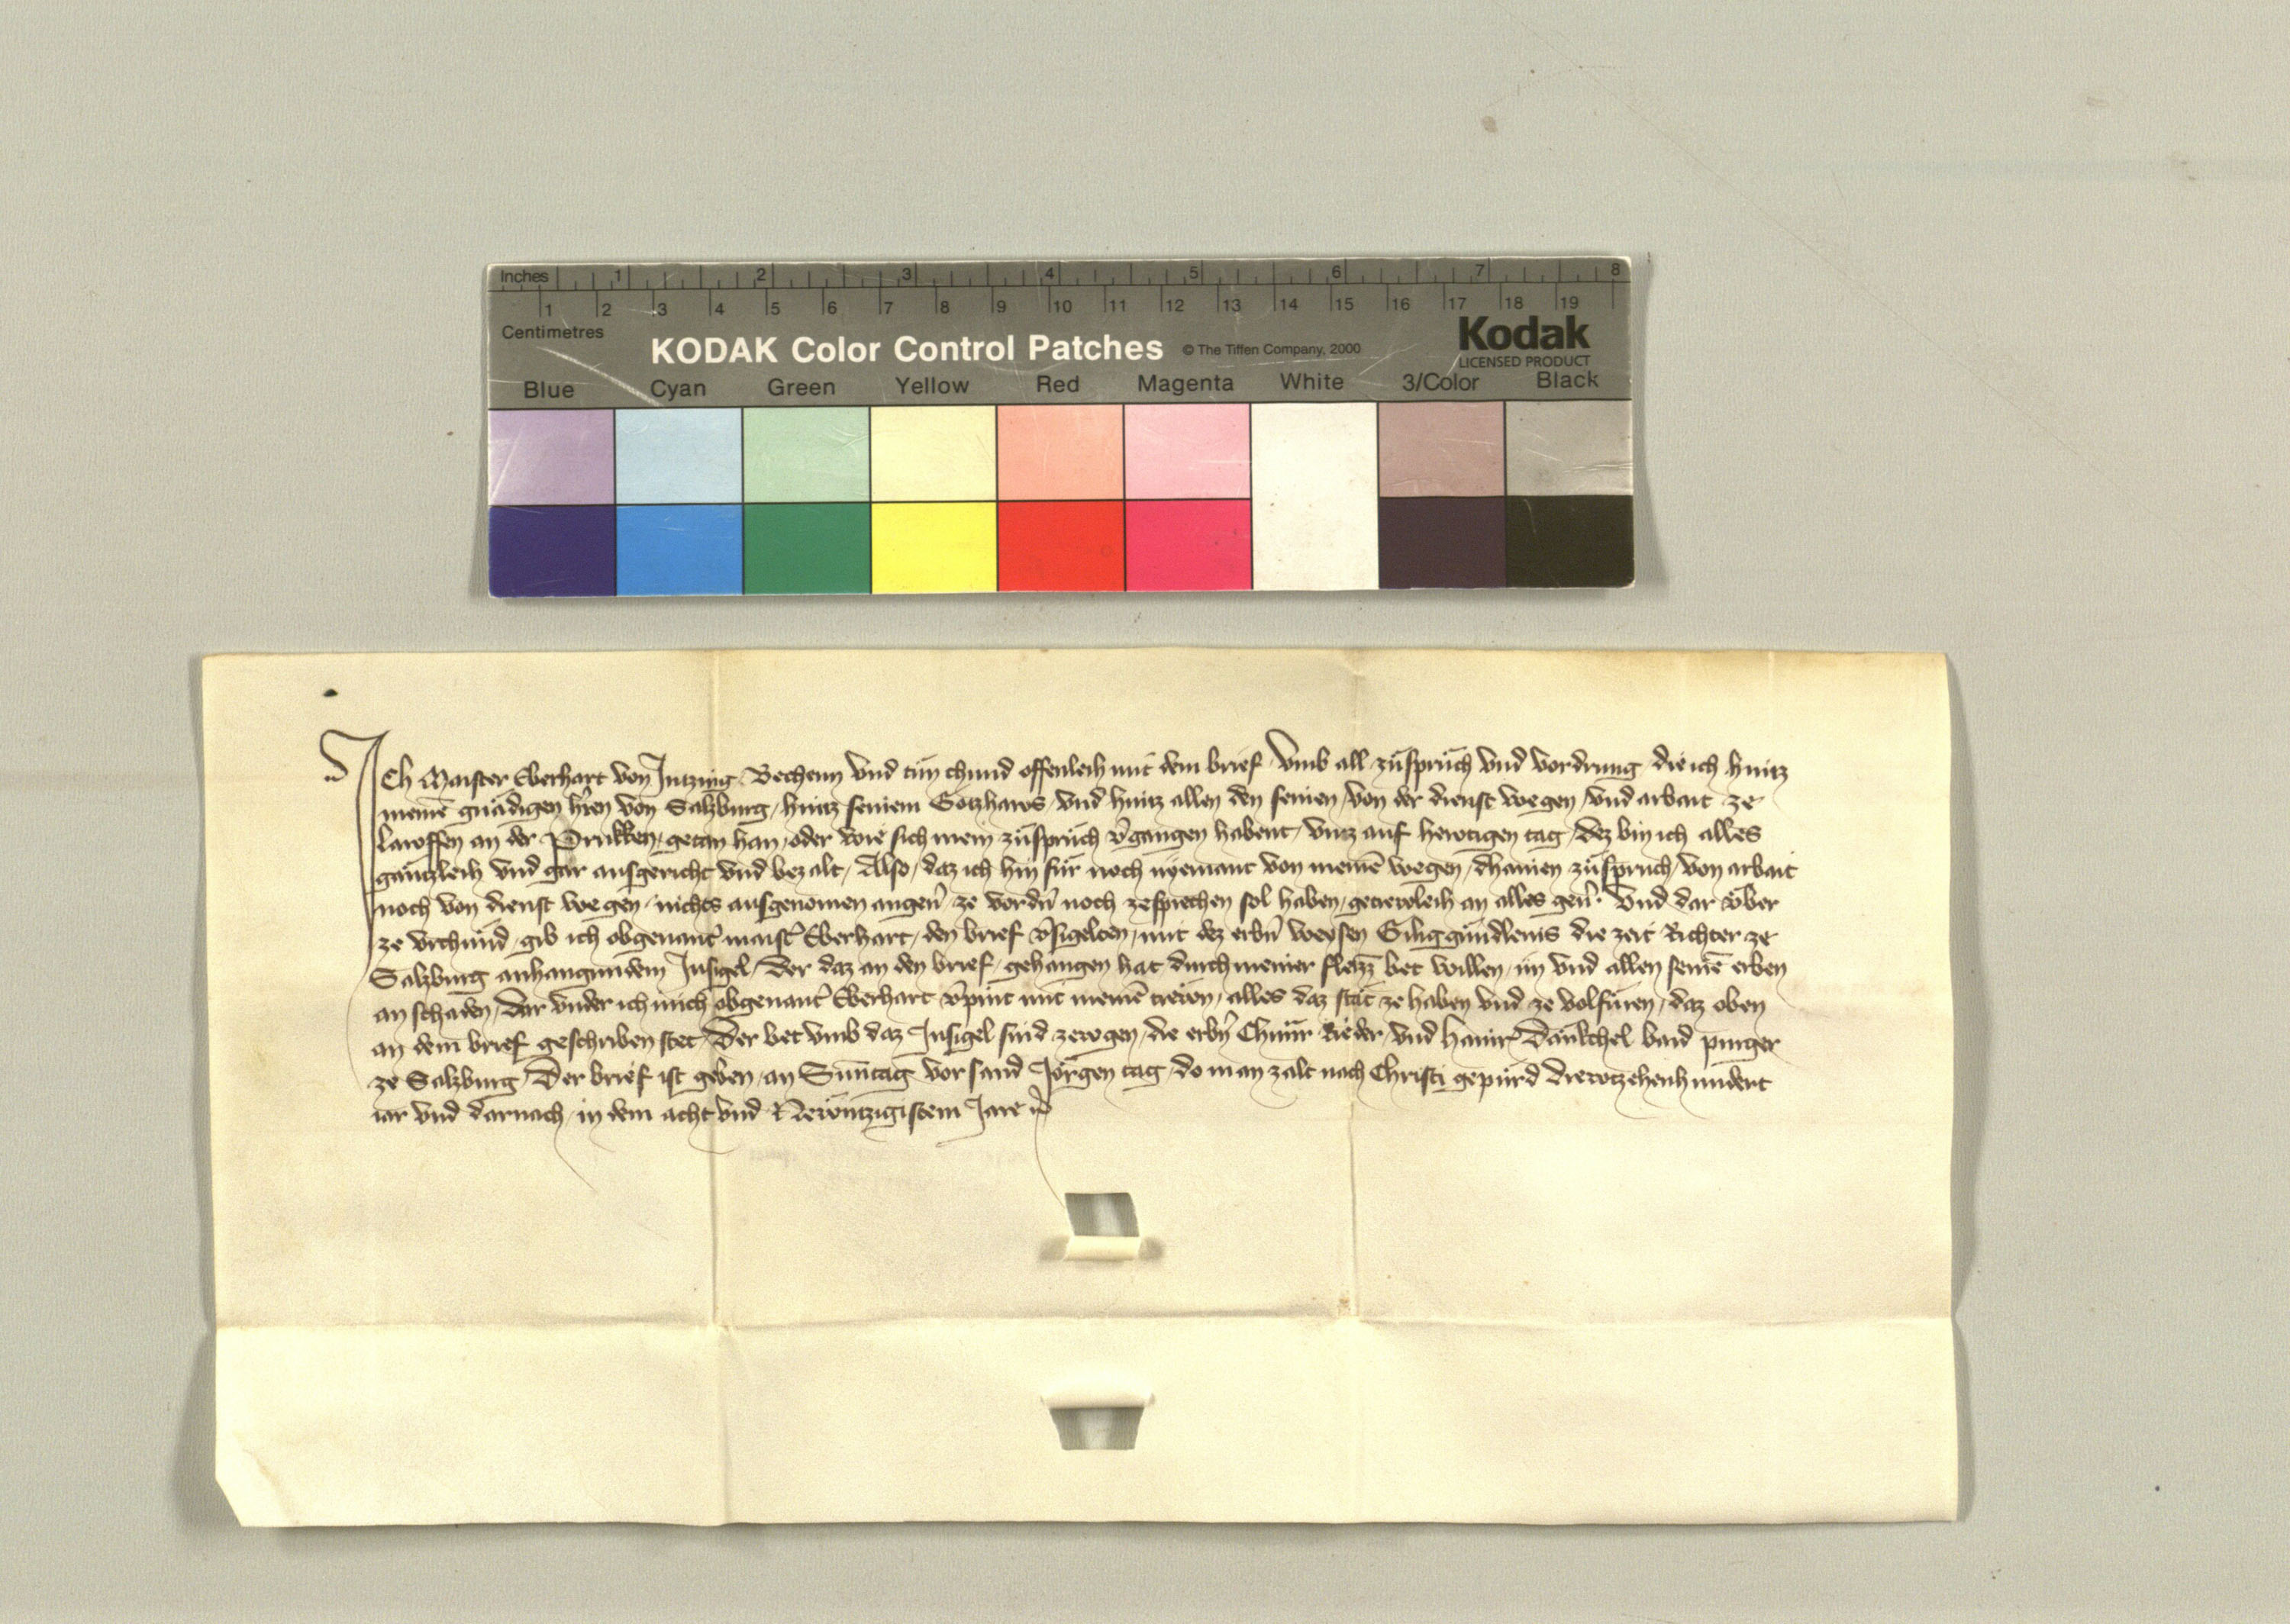 Inches 1 2 3 4 5 6 7 8
1 2 3 4 5 6 7 8 9 10 11 12 13 14 15 16 17 18 19
Centimetres
KODAK Color Control Patches © The Tiffen Company, 2000
Kodak
LICENSED PRODUCT
Blue Cyan Green Yellow Red Magenta White 3/Color Black
Ich Maister Eberhart von Jntzing Vechenn vnd tun chund offenleich mit dem brief / Vmb all zůsprůch vnd vordrung die ich hintz
meinē gnådigen hʼren von Salzburg / hintz seinem Gotzhaws vnd hintz allen den seinen / von der dienst wegen / vnd arbait ze
Lawffen an der Prukken / getan han / oder wie sich mein zůsprůch vʼgangen habent / vntz auf hewtigen tag / dez bin ich alles
gåntzleich vnd gar ausgericht vnd bezalt / Also / daz ich hin für noch nyemant von meinē wegen / dhainen zůspruch / von arbait
noch von dienst wegen / nichts ausgenomen angeuʼ / ze vordʼn noch zesprechen sol haben / getrewleich an alles geuʼ. Vnd dar vber
ze vrchund / gib ich obgenantʼ maistʼ Eberhart / den brief vʼsigelten / mit dez erbʼn weysen die zeit Richter ze
Salzburg anhangundem Jnsigel / Der daz an den brief / gehangen hat durch meiner fleizz bet willen / im vnd allen seinē erben
an schaden / Dar vnder ich mich obgenantʼ Eberhart vʼpint mit meinē trewen / alles daz ståt ze haben vnd ze volfůren / daz oben
an dem brief geschriben stet / Der bet vmb daz Jnsigel sind zewgen / die erbʼn Rieder / vnd Dånkchel baid purger
ze Salzburg / Der brief ist geben / an Sunntag vor sand Jörgen tag / do man zalt nach Christi gepurd drewtzehenhundert
iar vnd darnach / in dem acht vnd Newntzigistem Jare